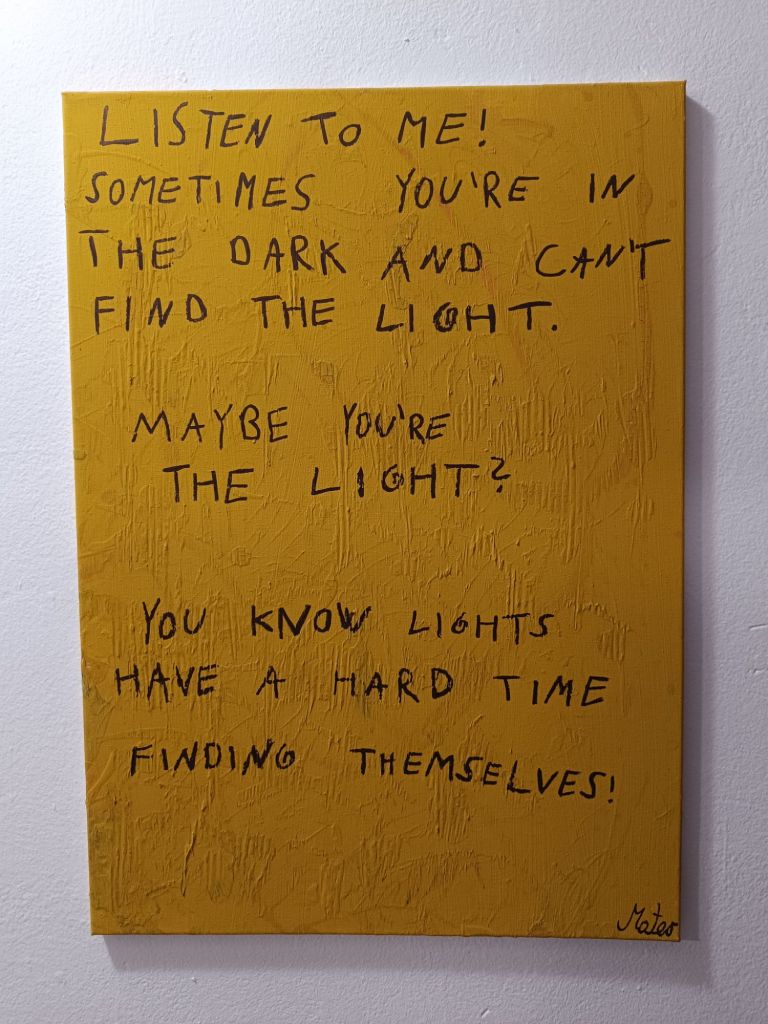 LISTEN TO ME!
SOMETIMES YOU'RE IN
THE DARK AND CAN'T
FIND THE LIGHT.
MAYBE YOU'RE
THE LIGHT?
YOU KNOW LIGHTS
HAVE A HARD TIME
FINDING THEMSELVES!
Mateo